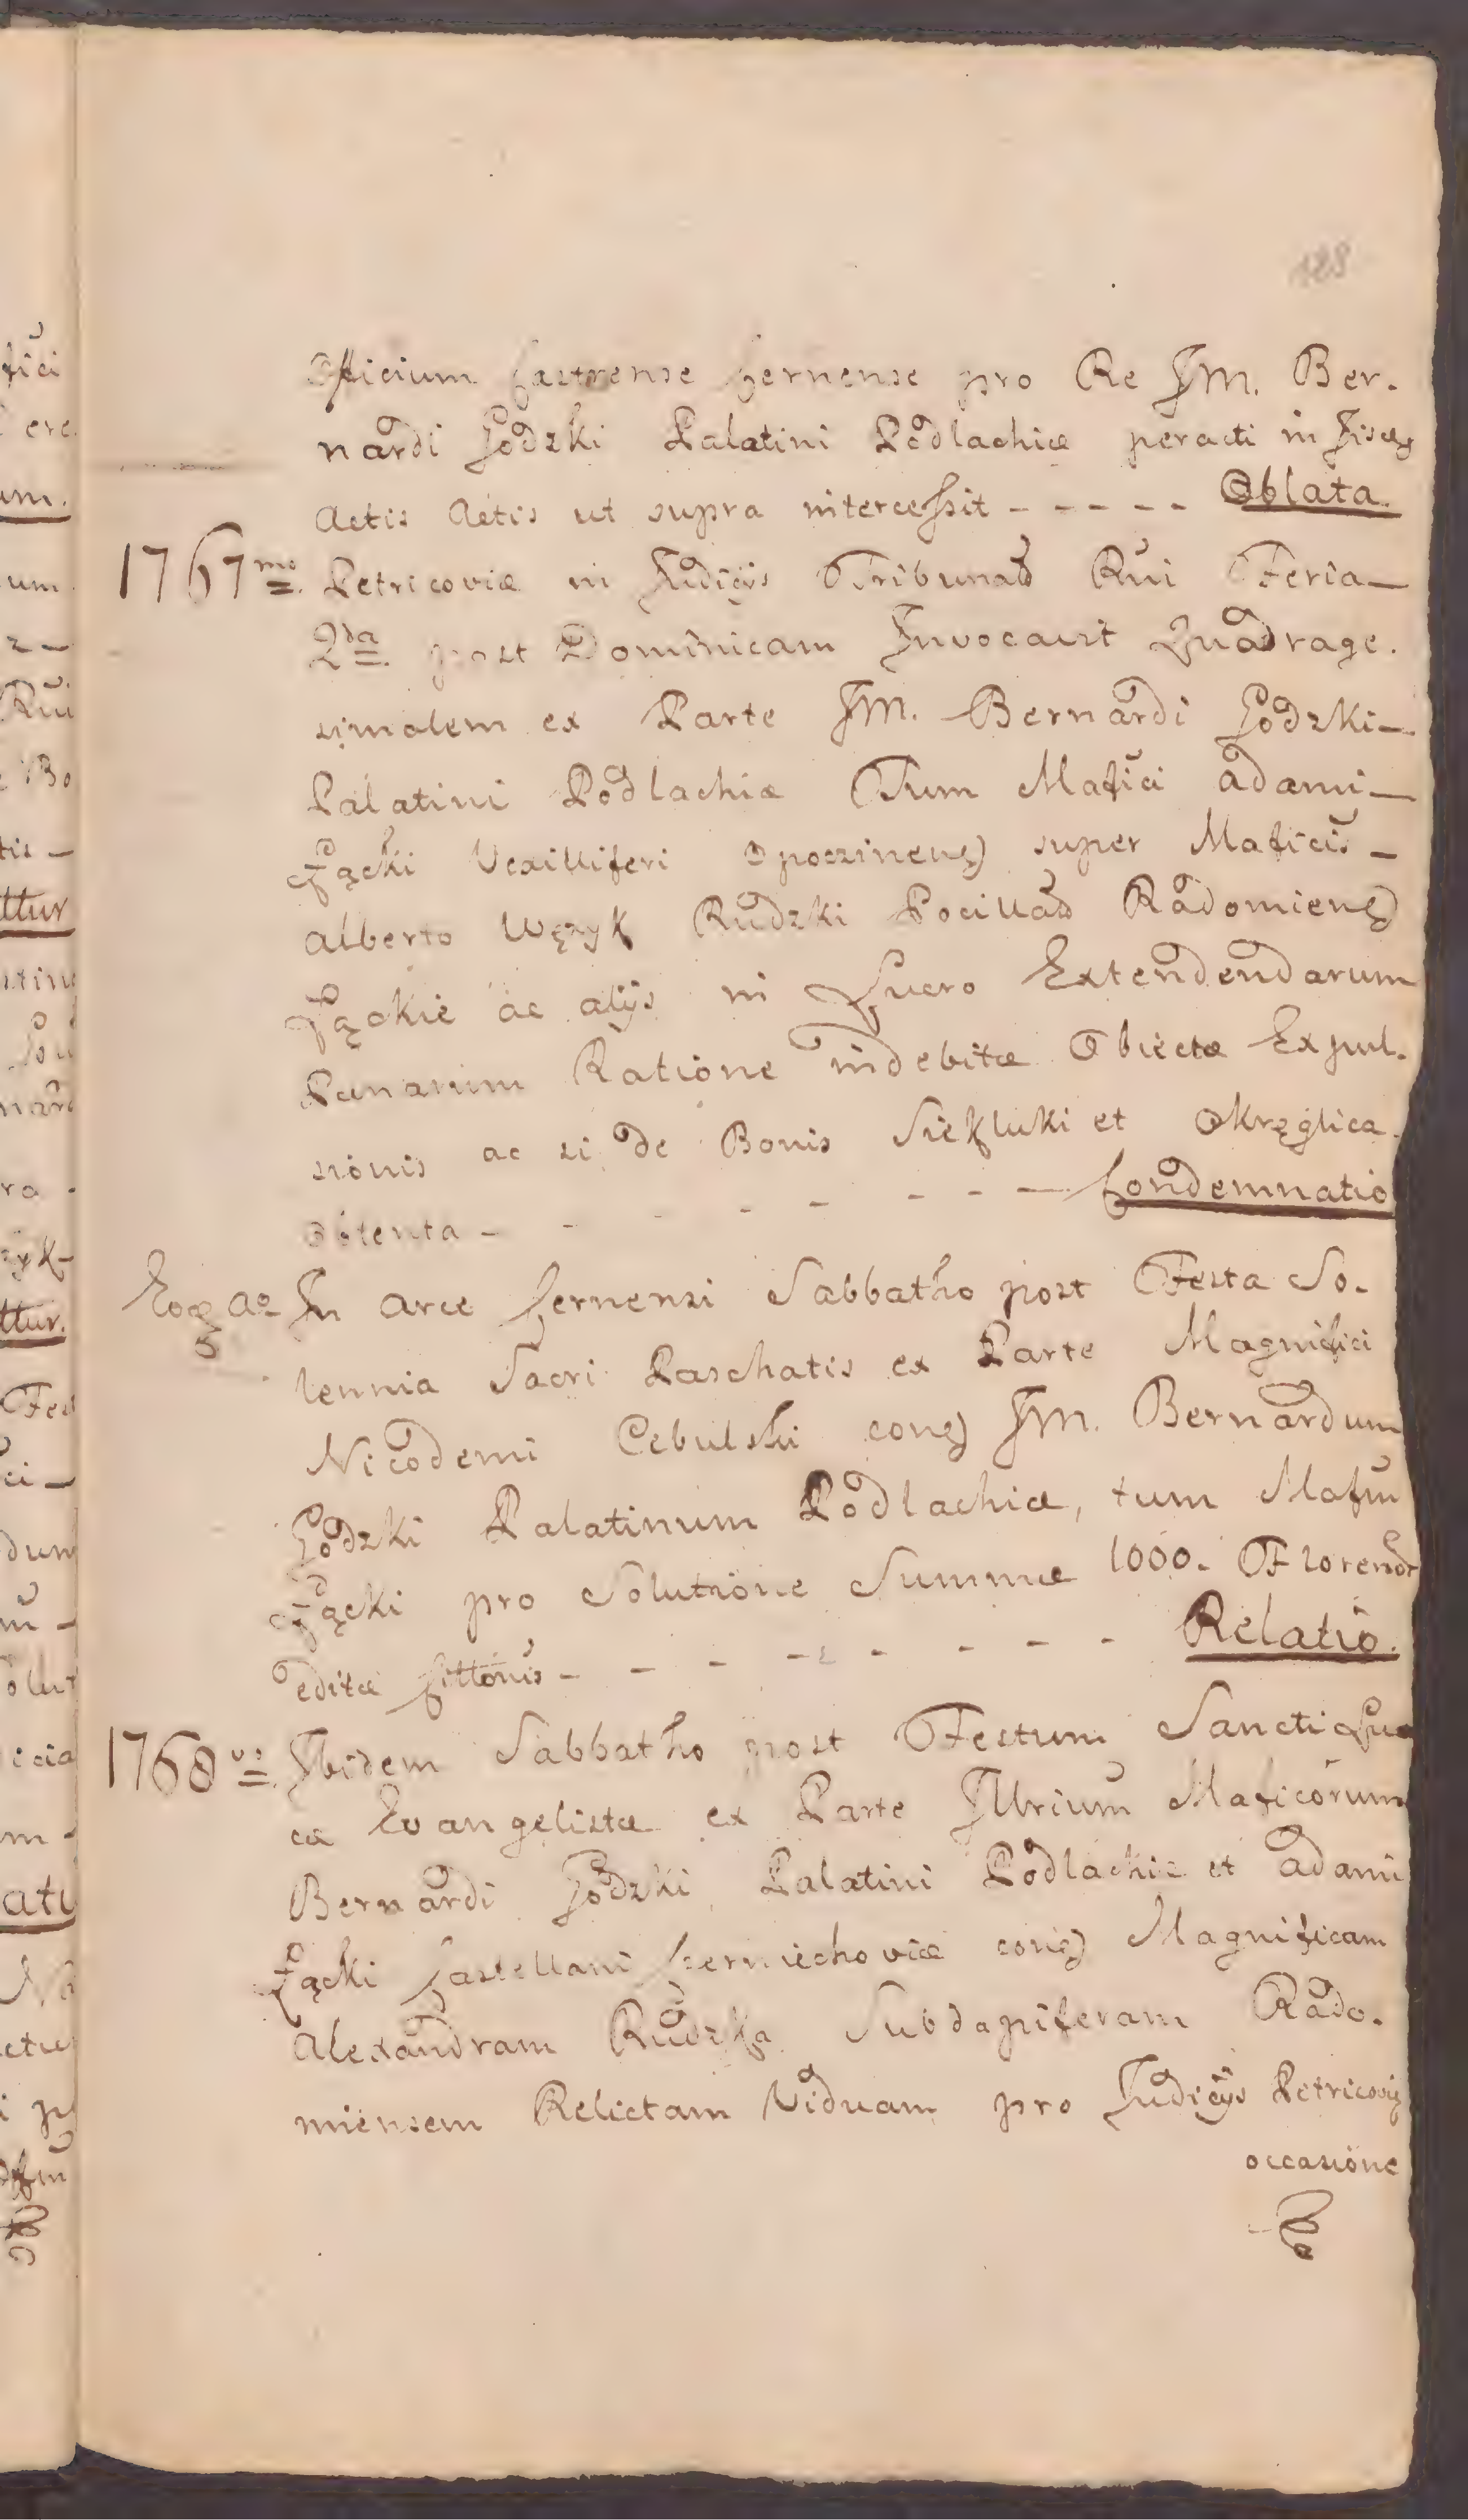 128
Officium Castrense Cernense pro Re JM. Ber.
nardi Godzki Palatini Podlachiæ peracti in Fisdeg
Actis Actis ut supra intercessit - - - - - Oblata.
1767mo Petricoviæ in Judicijs Tribunal Rni Feria
2da post Dominicam Invocavit Quadrage.
simalem ex Parte JM. Bernardi Godzki
Palatini Podlachiæ Tum Mafici Adami
Łącki Vexilliferi Opoczinens super Maficis
Alberto Wężyk Rudzki Pocillat Radomiens
Łąckie ac alijs in Lucro Extendendarum
Pænarum Ratione indebitæ Obiectæ Expul.
sionis ac si de Bonis Siekluki et Okręglica
obtenta - - - - - - - - Condemnatio
Eoq Ao In Arce Cernensi Sabbatho post Festa So.
lennia Sacri Paschatis ex Parte Magnifici
Nicodemi Cebulski cons JM. Bernardum
Godzki Palatinum Podlachiæ, tum Mafm
Łącki pro Solutione Summæ 1000. Florenor
editæ Cittonis - - - - - - - - Relatio.
1768vo Ibidem Sabbatho post Festum Sancti Lu
cæ Evangelistæ ex Parte Illrium Maficorum
Bernardi Godzki Palatini Podlachiæ et Adami
Łącki Castellani Czerniechoviæ cons Magnificam
Alexandram Rudzka Subdapiferam Rado.
miensem Relictam Viduam pro Judicijs Petricoviæ
occasione